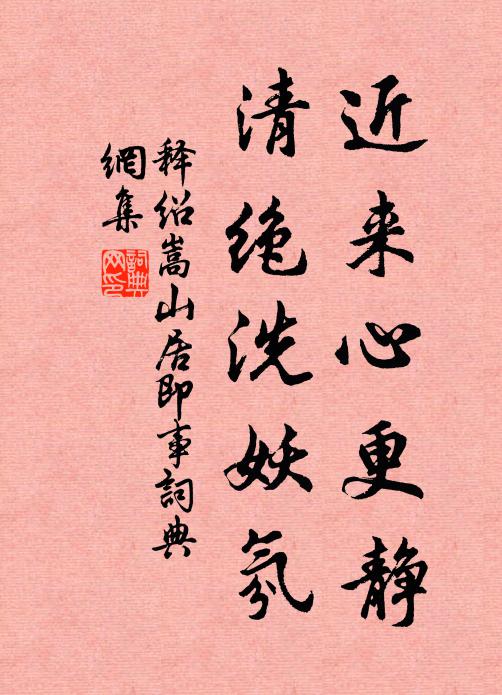 近来心更静
清绝洗妖氛
释绍嵩山居即事詞典
網集
詞典
网印